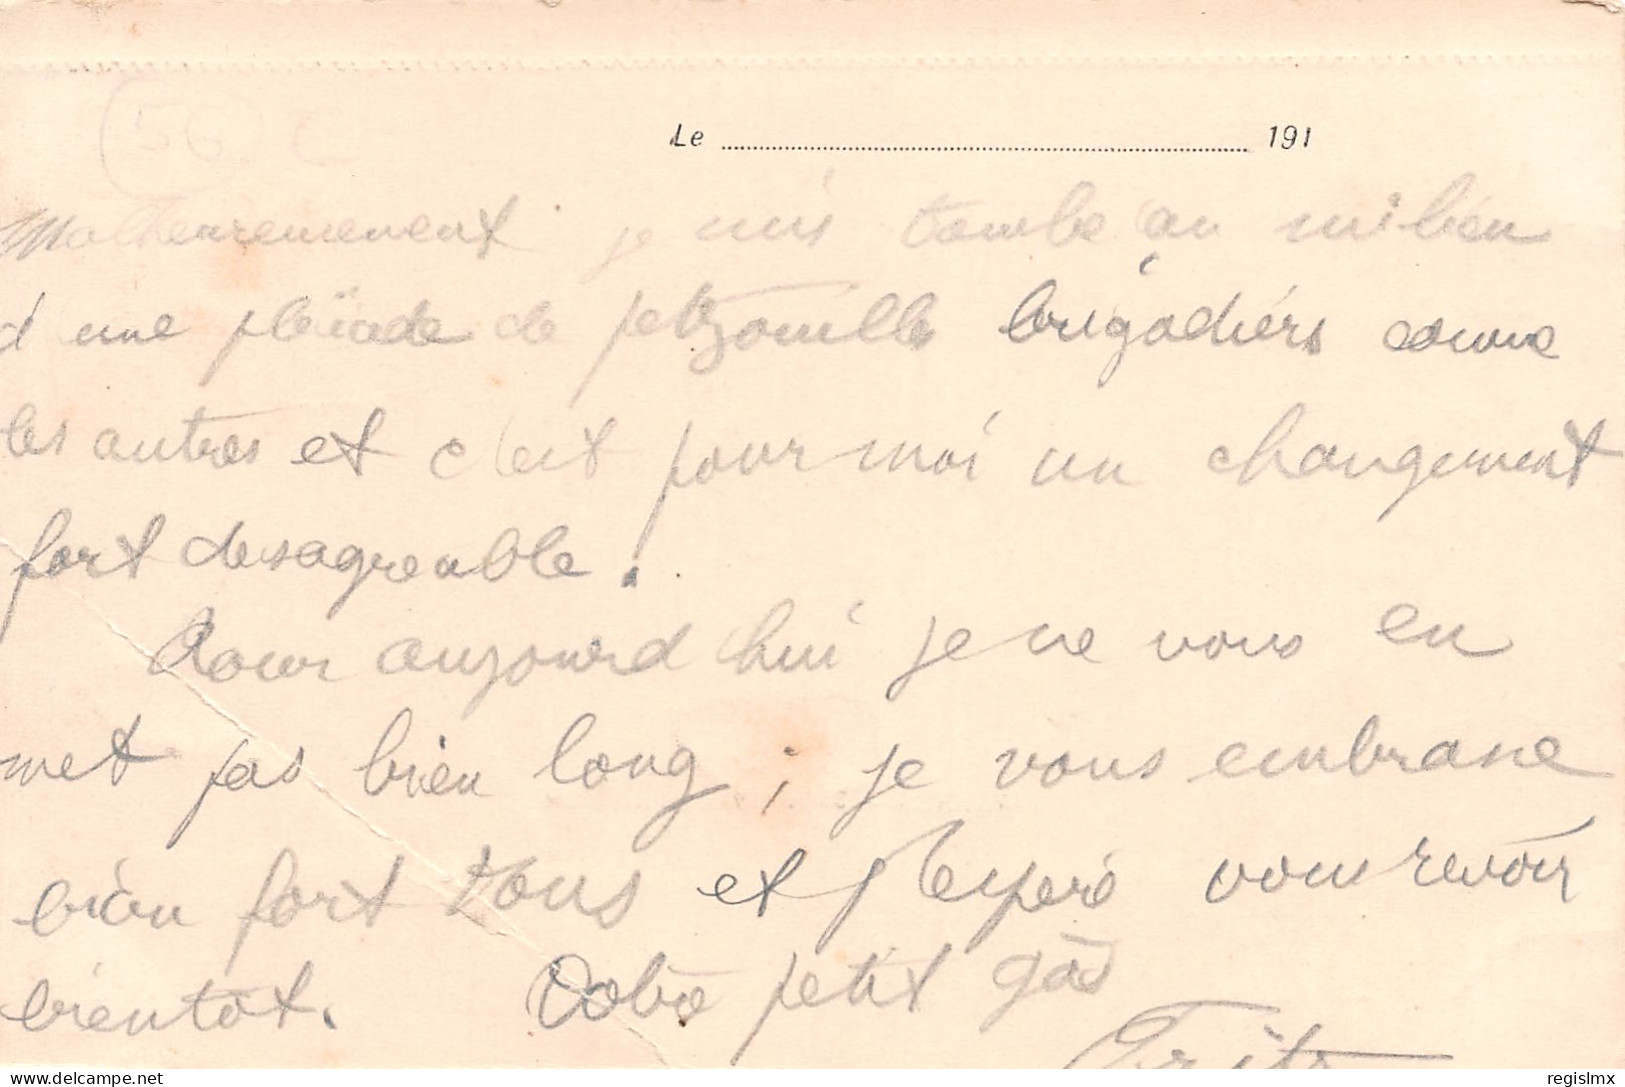 56 C
Le 191
Malheureusement je suis tombé au milieu
d une pleïade de petzouilles brigadiers comme
les autres et c'est pour moi un changement
fort desagreable.
Pour aujourd hui je ne vous en
met pas bien long ; je vous embrasse
bien fort tous et j'espere vous revoir
bientôt. Votre petit gâs
Fritz
delcampe.net
regislmx